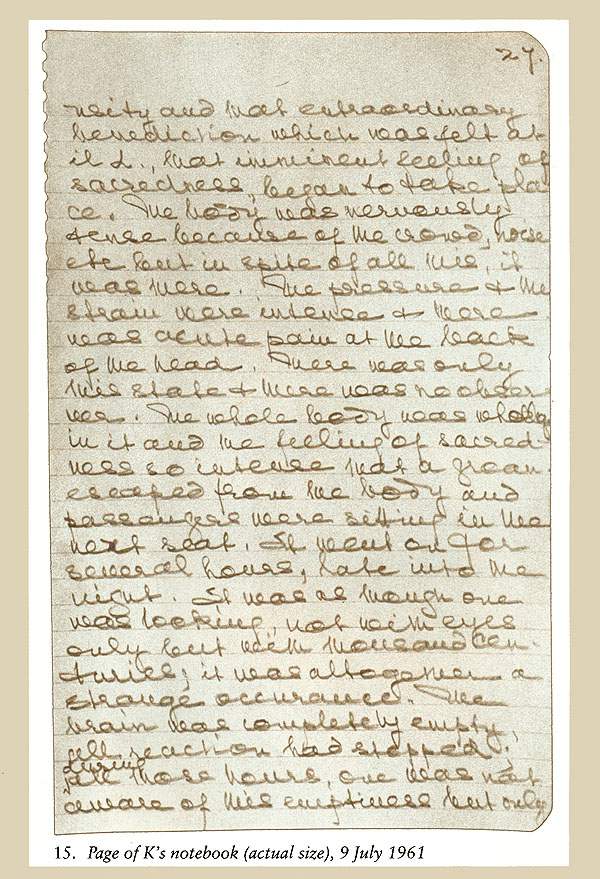 27.
nsity and that extraordinary
benediction which was felt at
il L., that imminent feeling of
sacredness, began to take pla
ce. The body was nervously
tense because of the crowd, noise
etc but in spite of all this, it
was there. The pressure & the
strain were intense & there
was acute pain at the back
of the head. There was only
this state & there was no obser
ver. The whole body was wholly
in it and the feeling of sacred-
ness so intense that a groan
escaped from the body and
passangers were sitting in the
next seat. It went on for
several hours, late into the
night. It was as though one
was looking, not with eyes
only but with thousand cen-
turies; it was altogether a
strange occurance. The
brain was completely empty,
all reaction had stopped;
during
all those hours, one was not
aware of this emptiness but only
15. Page of K's notebook (actual size), 9 July 1961